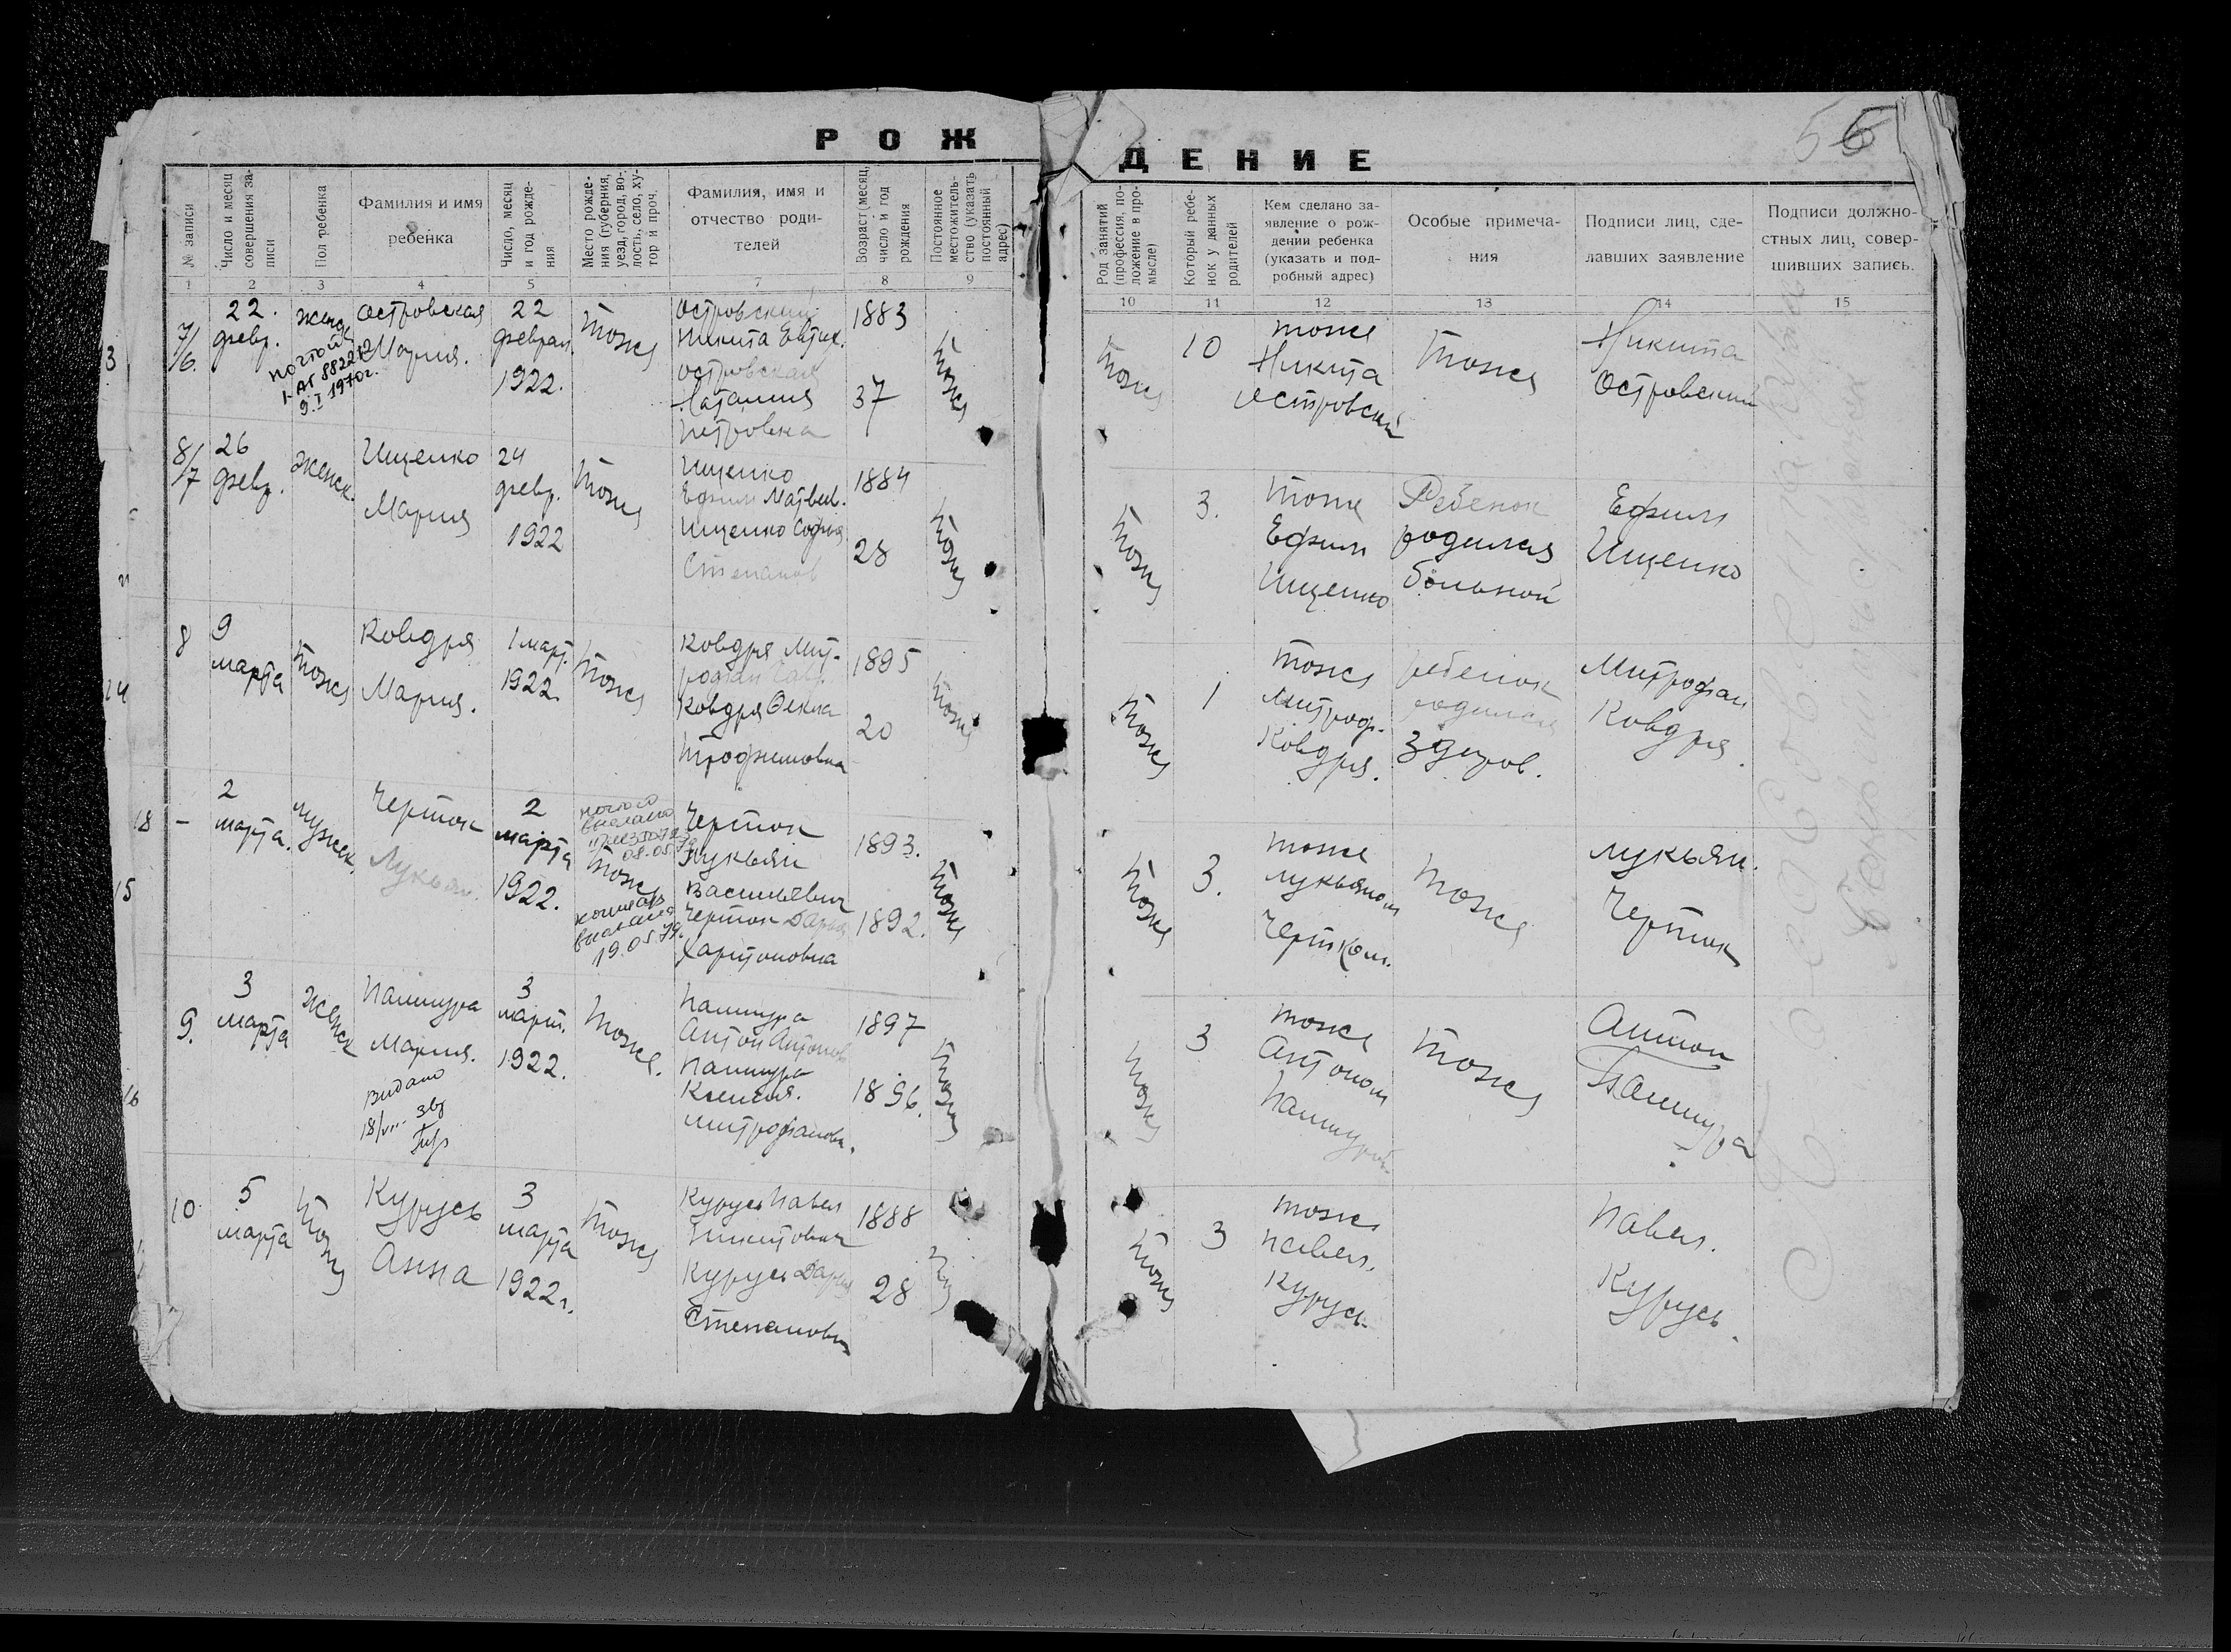 РОЖДЕНИЕ
56
№ записи
Число и месяц совершения записи
Пол ребенка
Фамилия и имя ребенка
Число, месяц и год рождения
Место рождения (губерния, уезд, город, волость, село, хутор и проч.
Фамилия, имя и отчество родителей
Возраст (месяц, число и год рождения
Постоянное местожительство (указать постоянный адрес)
Род занятий (профессия, положение в промысле)
Который ребенок у данных родителей
Кем сделано заявление о рождении ребенка (указать и подробный адрес)
Особые примечания
Подписи лиц, сделавших заявление
Подписи должностных лиц, совершивших запись.
1 2 3 4 5 7 8 9 10 11 12 13 14 15
3
7/6.
22.
февр.
женск
Островская
Мария.
22
феврал.
1922.
тоже
Островский
Никита Евтих.
Островская
Наталия
Петровна
1883
37
тоже
почтой
I-АГ 882212
9.I 1970г.
тоже
10
тоже
Никита
Островский
тоже
Никита
Островский
8/7
26
февр.
женск.
Ищенко
Мария
24
февр.
1922
тоже
Ищенко
Ефим Матвеев.
Ищенко София
Степанов
1884
28
тоже
тоже
3.
тоже
Ефим
Ищенко
Ребенок
родился
больной
Ефим
Ищенко
14
8
9
марта
тоже
Ковдря
Мария.
1 март.
1922.
тоже
Ковдря Мит-
рофан
Ковдря Фекла
Трофимовна
1895
20
тоже
тоже
1
тоже
Митроф.
Ковдря.
ребенок
родился
здоров.
Митрофан
Ковдря.
18
15
–
2
марта.
мужск.
Черток
Лукьян.
2
марта
1922.
тоже
08.05.79
выслана
19.05.79г.
Черток
Лукьян
Васильевич
Черток Дария
Харитоновна
1893.
1892.
тоже
тоже
3.
тоже
Лукьяном
Чертком.
тоже
Лукьян.
Черток
16
9.
3
марта
женск
Пашура
Мария.
Видано
18/VIII-
3
март.
1922.
тоже.
Пашура
Антон Антонов
Пашура
Ксения.
Митрофановн.
1897
1896.
тоже
тоже
3
тоже
Антоном
тоже
Антон
Пашура
10
5
марта
тоже
Курусь
Анна
3
марта
1922г.
тоже
Курусь Павел
Никитович
Курусь Дария
Степановн
1888
28
тоже
3
тоже
Павел.
Курусь.
Павел.
Курусь.